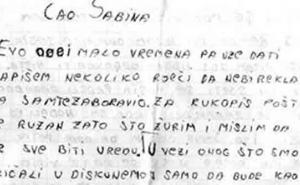 ĆAO SABINA
EVO DOBI MALO VREMENA PA UZE DATI
APIŠEM NEKOLIKO RJEČI DA NEBI REKLA
A SAMTEZABORAVIO. ZA RUKOPIS POŠT
E RUŽAN ZATO ŠTO ŽURIM I MISLIM DA
E SVE BITI UREDU. U VEZI ONOG ŠTO SMO
ICALI U DISKUNEMOJ SAMO DA BUDE KAO